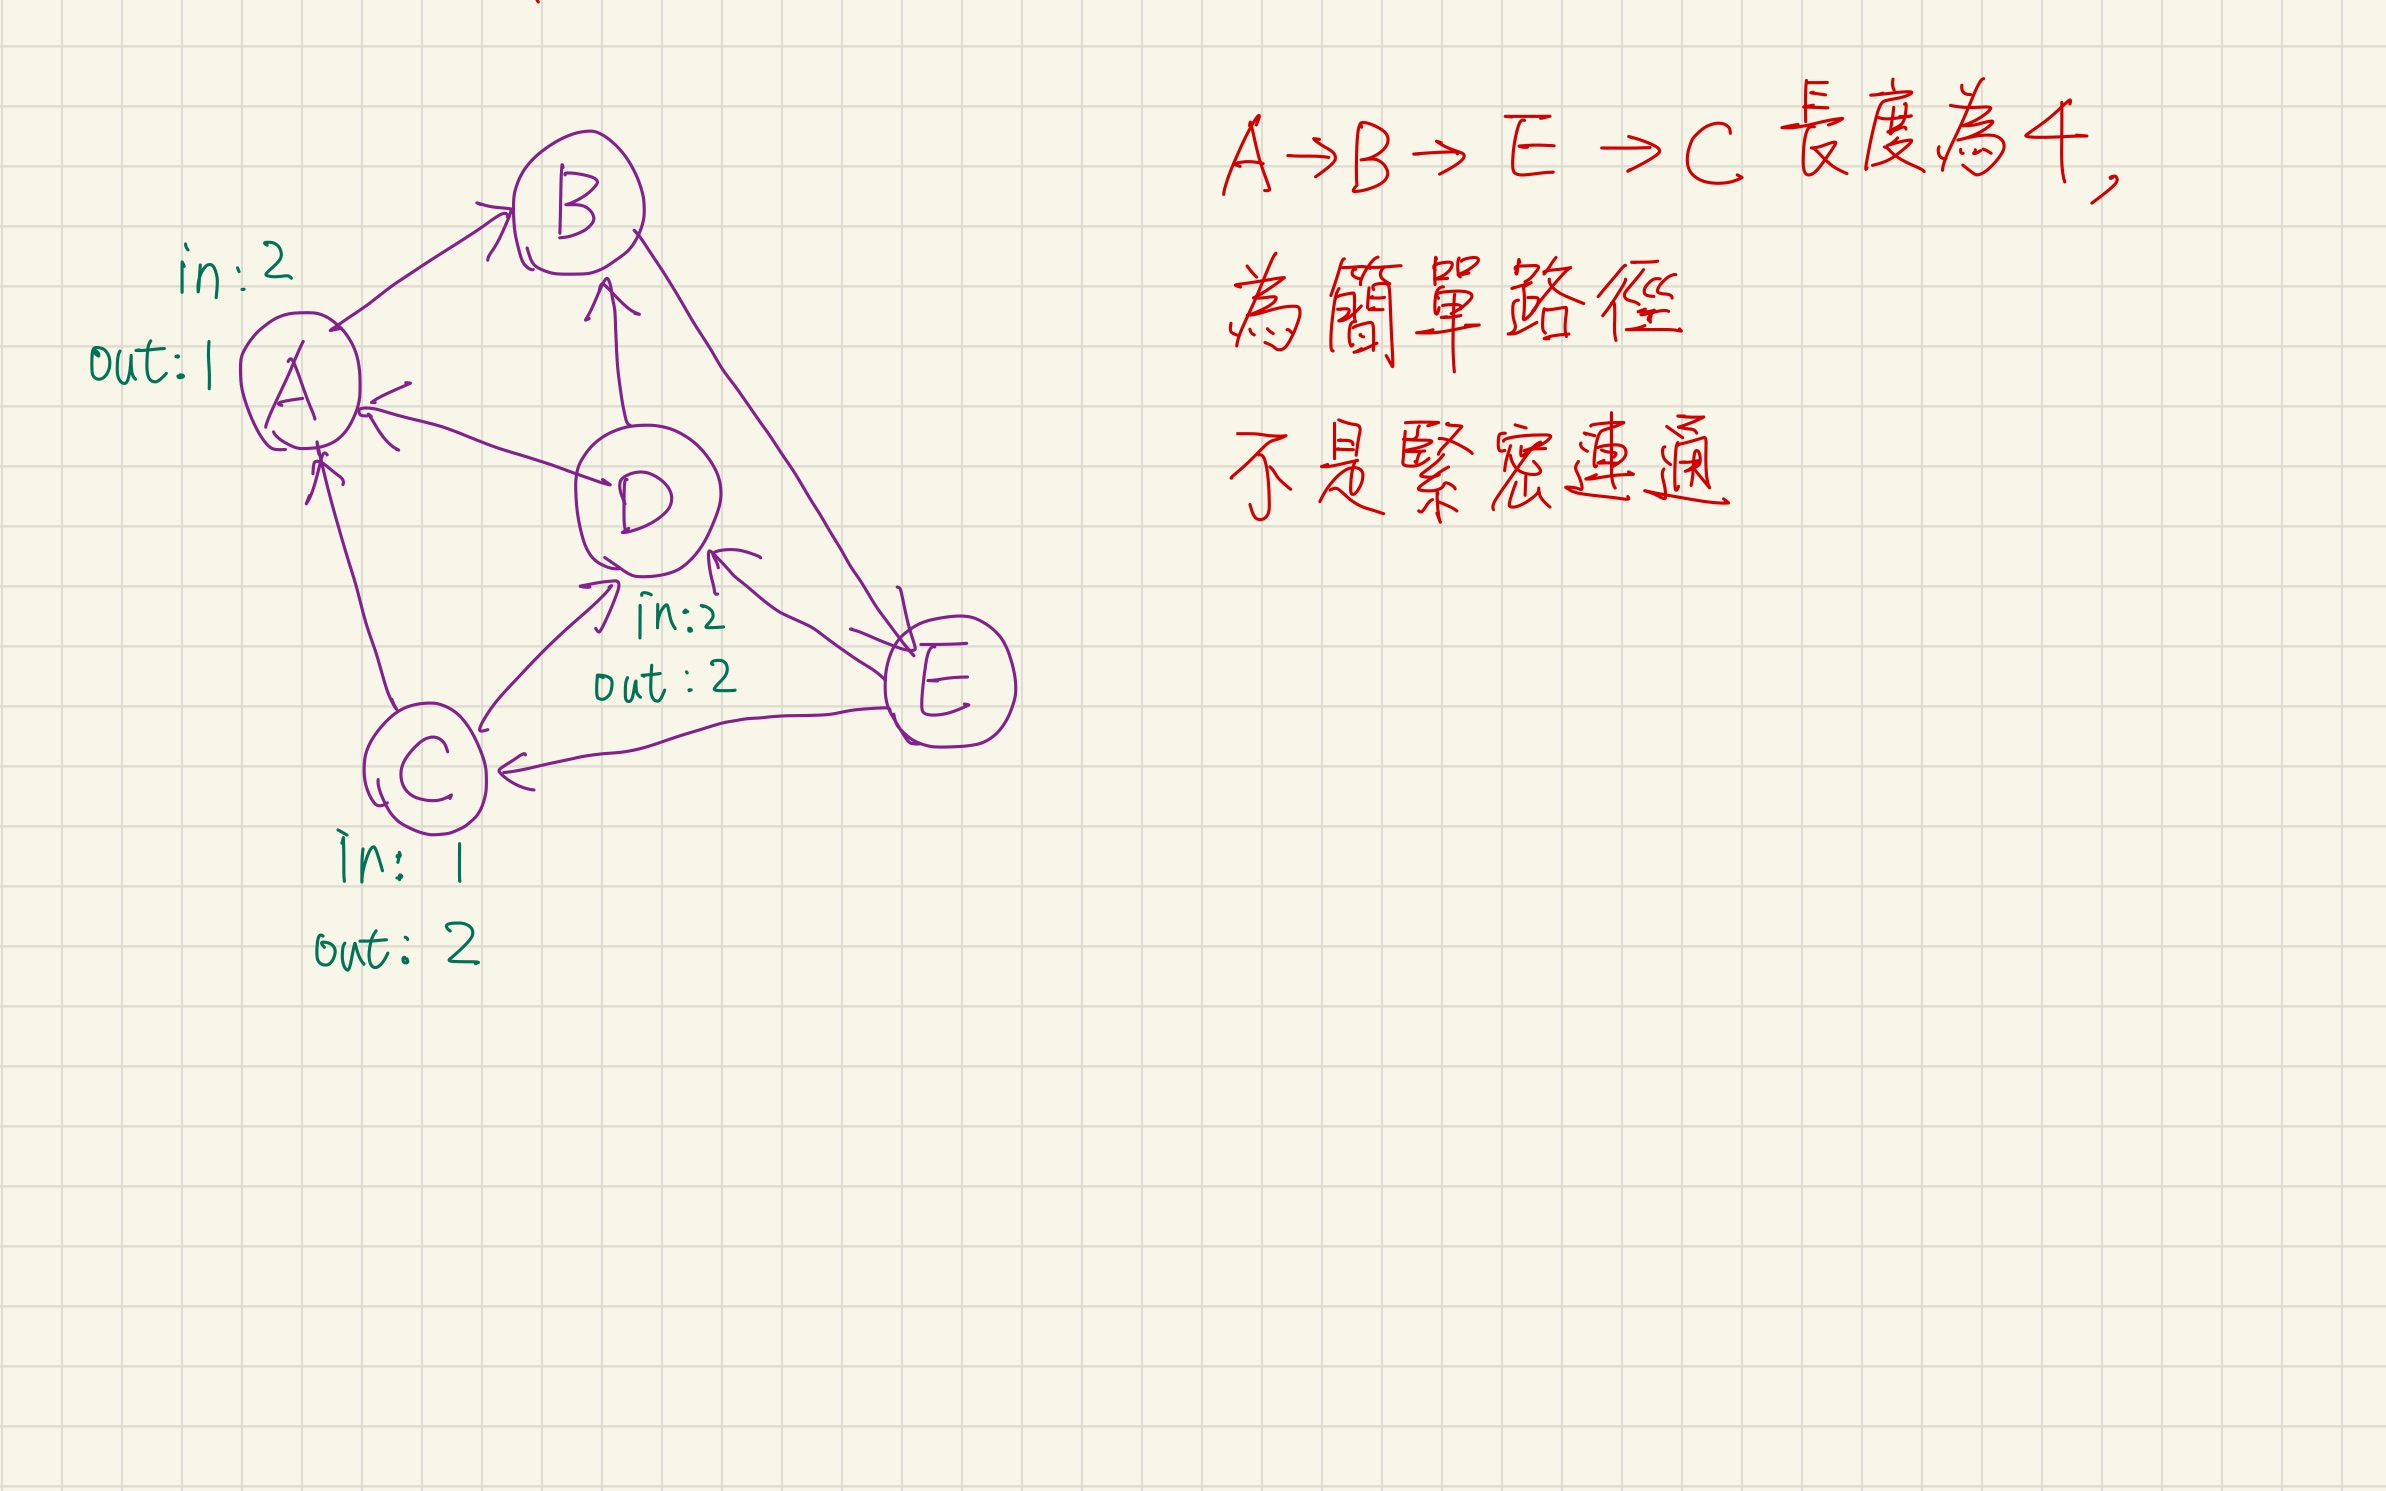 B
in: 2
out: 1
A
D
in: 2
out: 2
E
C
in: 1
out: 2
A→B→E→C 長度為4,
為簡單路徑
不是緊密連通